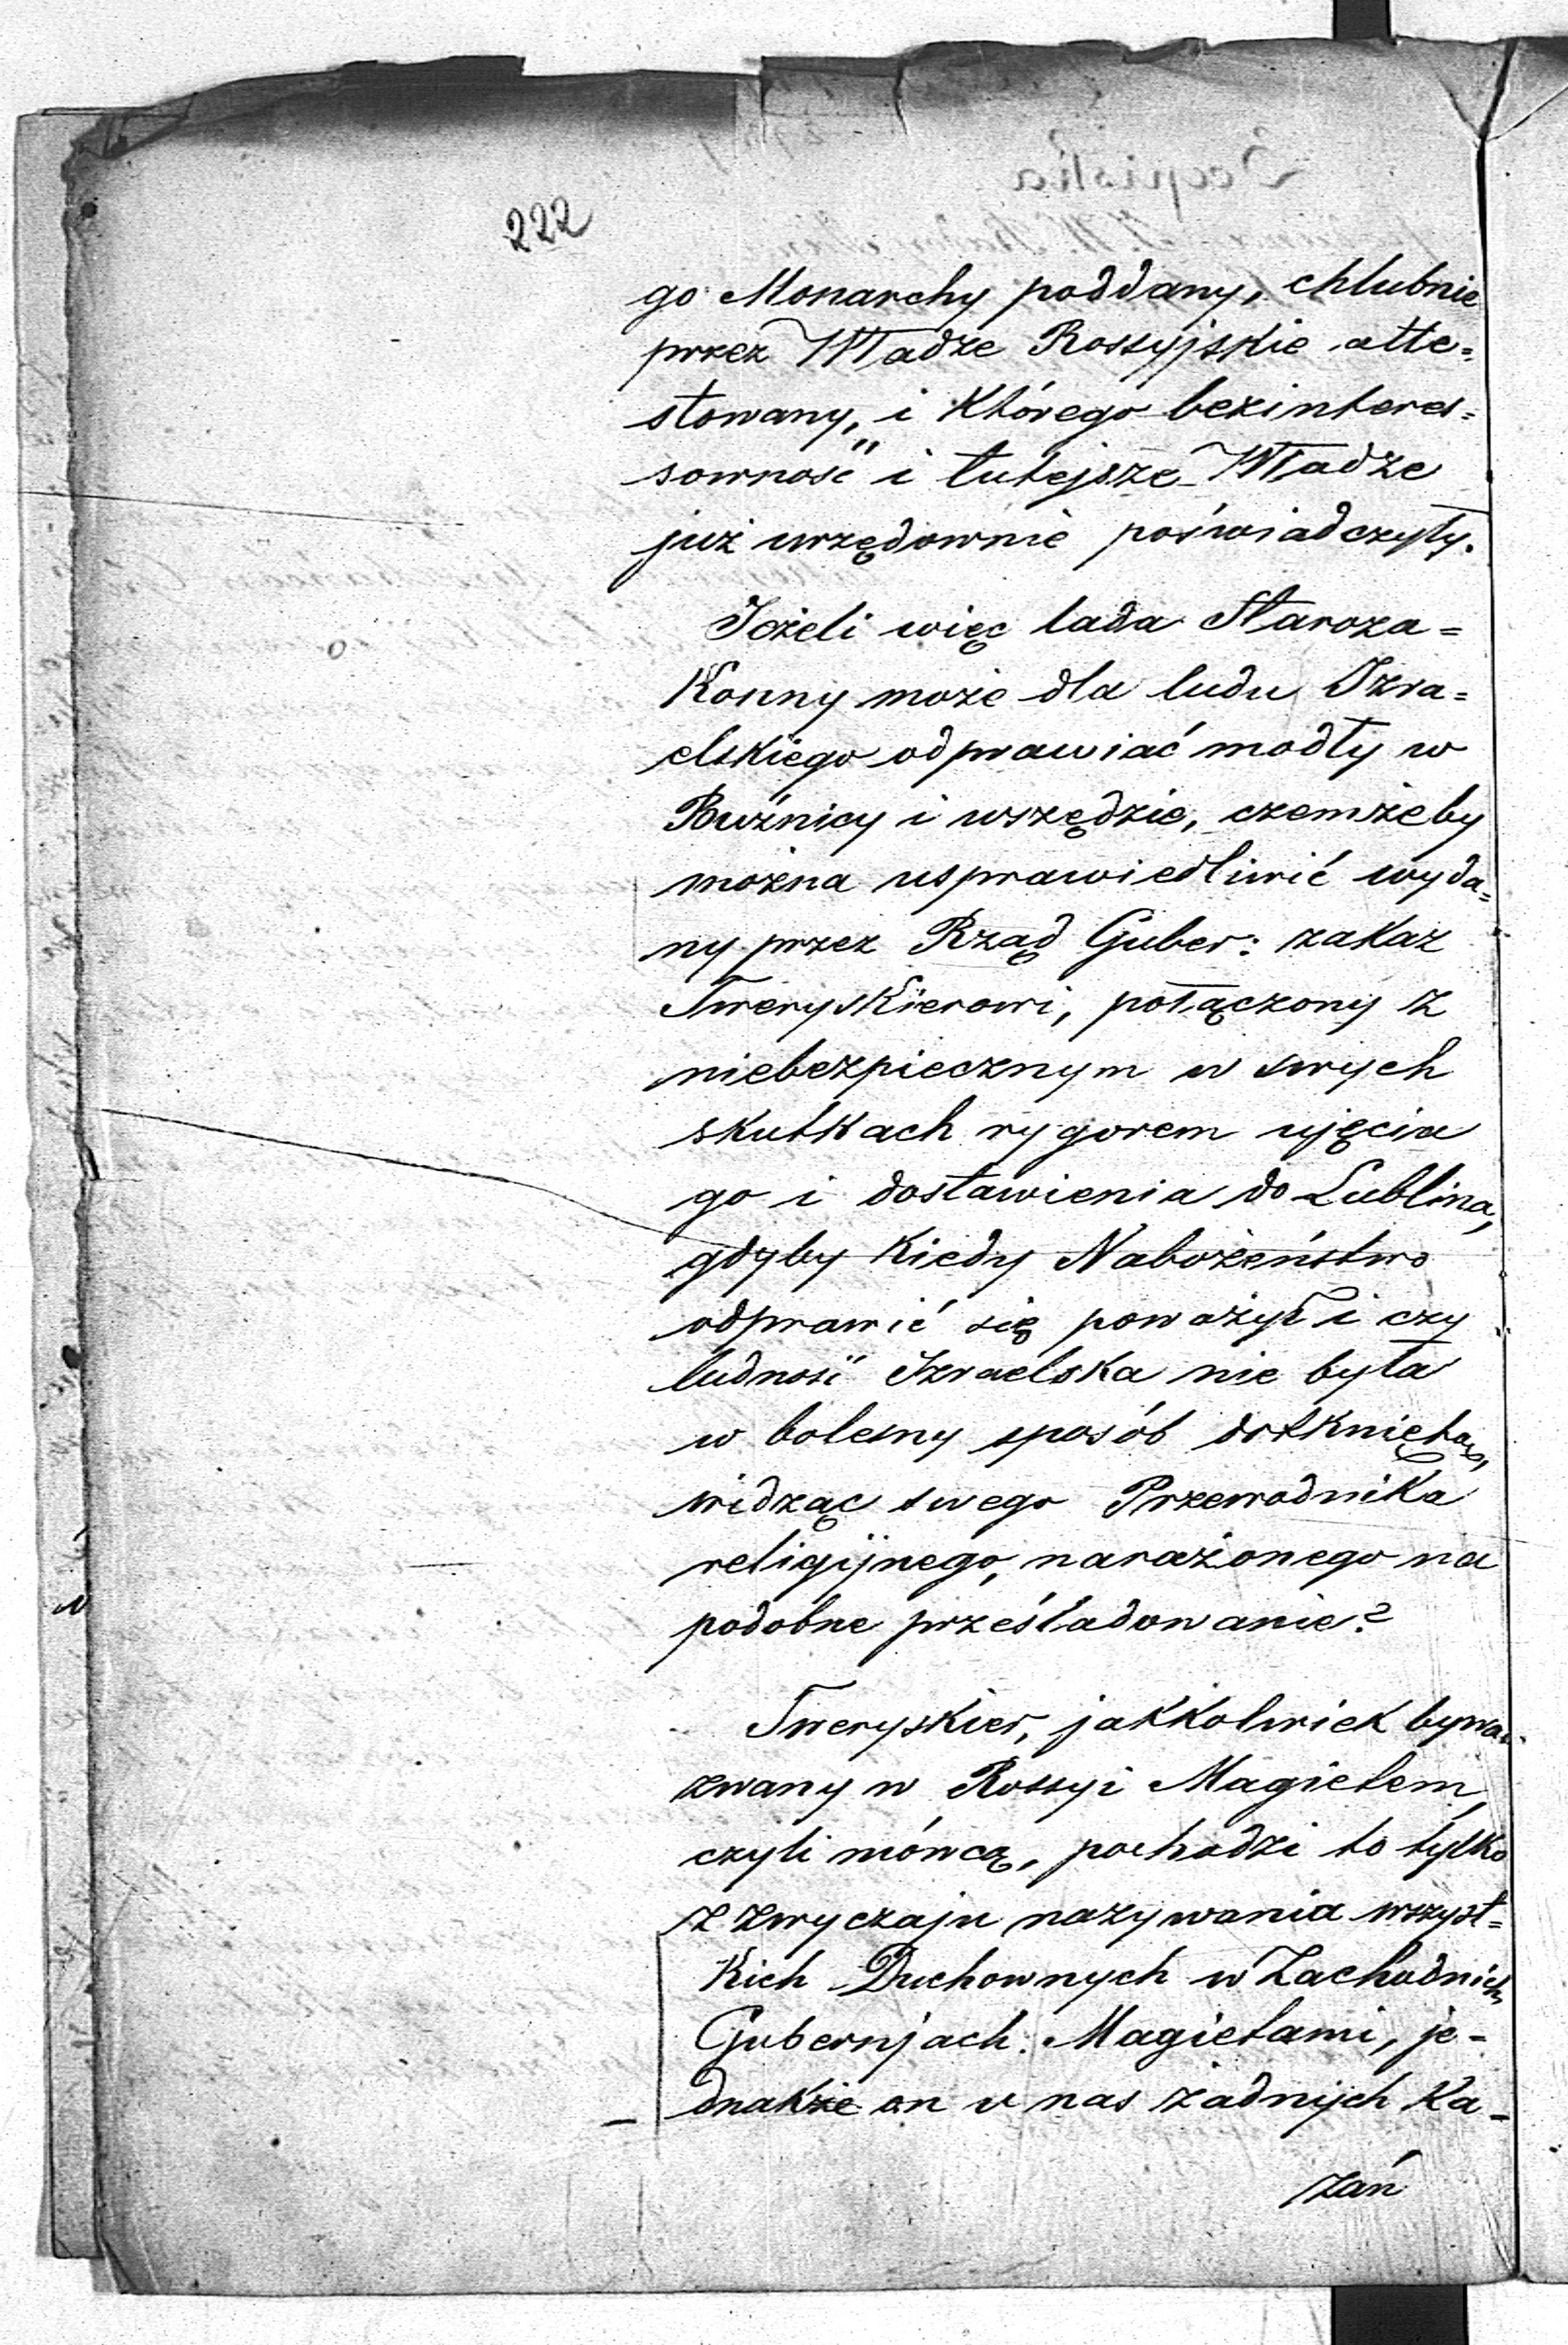 222
go Monarchy poddany, chlubnie
przez Władze Rossyjskie atte=
stowany, i którego bezinteres=
sowność i tutejsze Władze
już urzędownie poświadczyły.
Jeżeli więc lada Staroza=
konny może dla ludu Izra=
elskiego odprawiać modły w
Buźnicy i wszędzie, czemżeby
można usprawiedliwić wyda=
ny przez Rząd Guber: zakaz
Tweryskierowi, połączony z
niebezpiecznym w swych
skutkach rygorem ujęcia
go i dostawienia do Lublina,
gdyby kiedy Nabożeństwo
odprawić się poważył i czy
ludność Izraelska nie była
w bolesny sposób dotkniętą,
widząc swego Przewodnika
religijnego, narażonego na
podobne prześladowanie?
Tweryskier, jakkolwiek bywa
zwany w Rossyi Magietem,
czyli mówcą, pochodzi to tylko
z zwyczaju nazywania wszyst=
kich Duchownych w Zachodnich
Gubernjach Magietami, je-
dnakże on u nas żadnych Ka-
zań